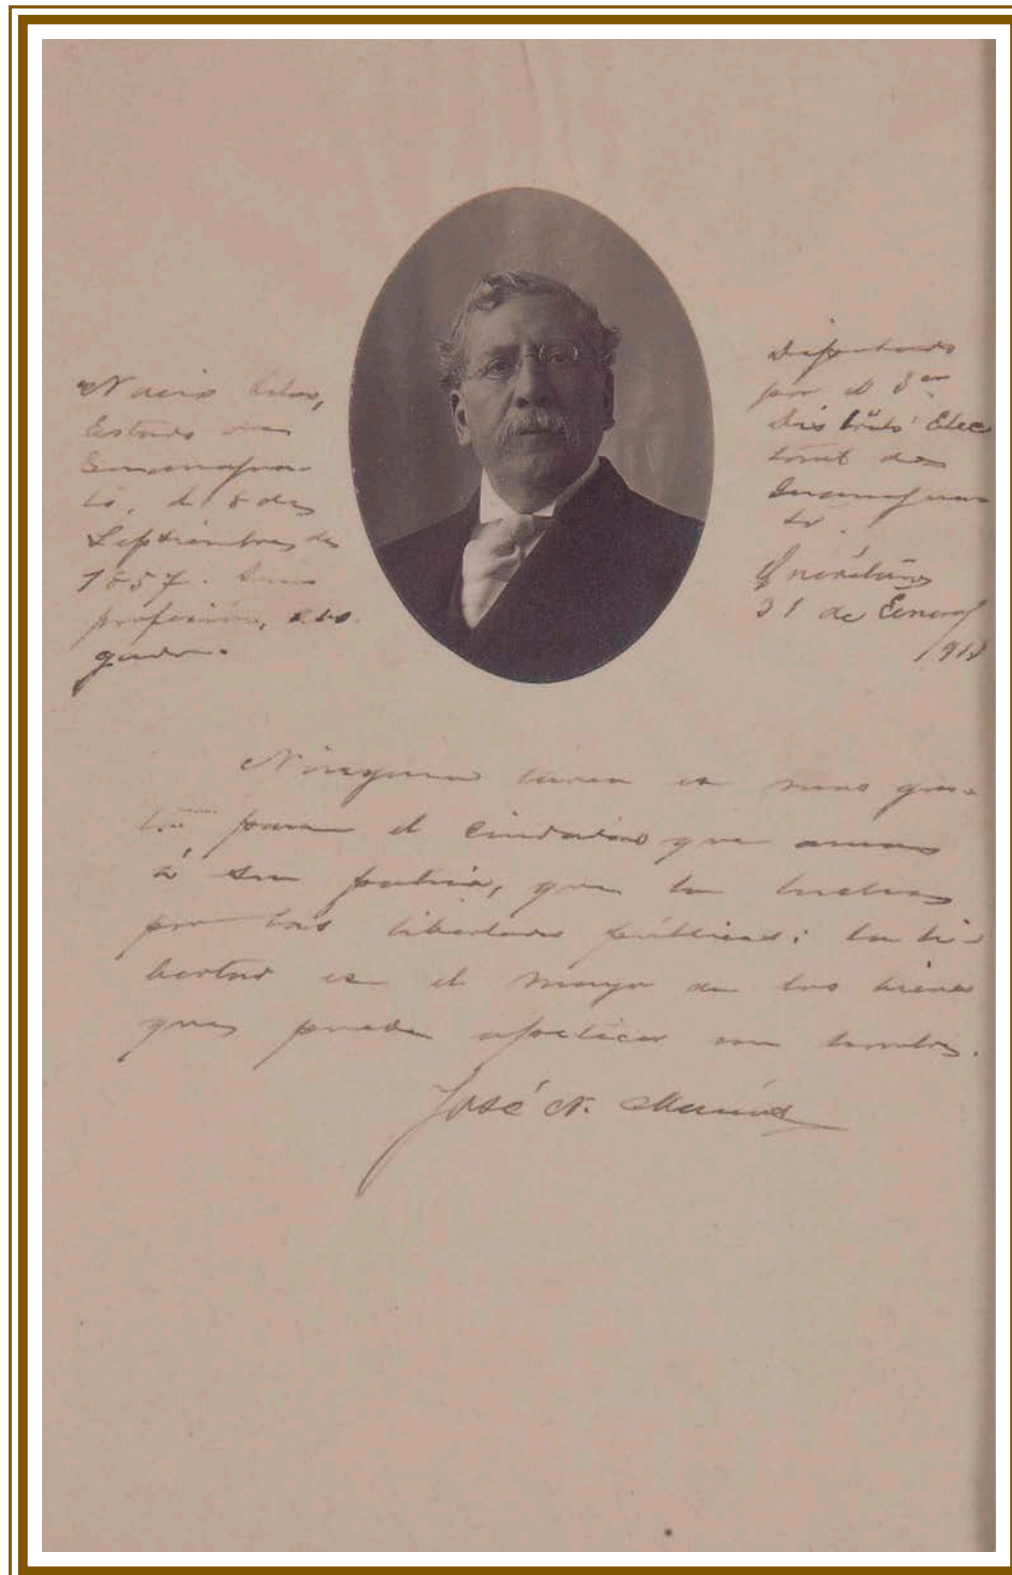 Nació Silao,
Estado de
Guanajua-
to, el 8 de
Septiembre de
1857. Su
profesión, abo-
gado.
Diputado
por el 8º
Distrito Elec
toral de
Guanajua
to.
Querétaro
31 de Enero
Ninguna tarea es mas gra-
ta para el ciudadano que ama
á su patria, que la lucha
por las libertades públicas; la li-
bertad es el mayor de los bienes
que puede apetecer un hombre.
José N. Macías